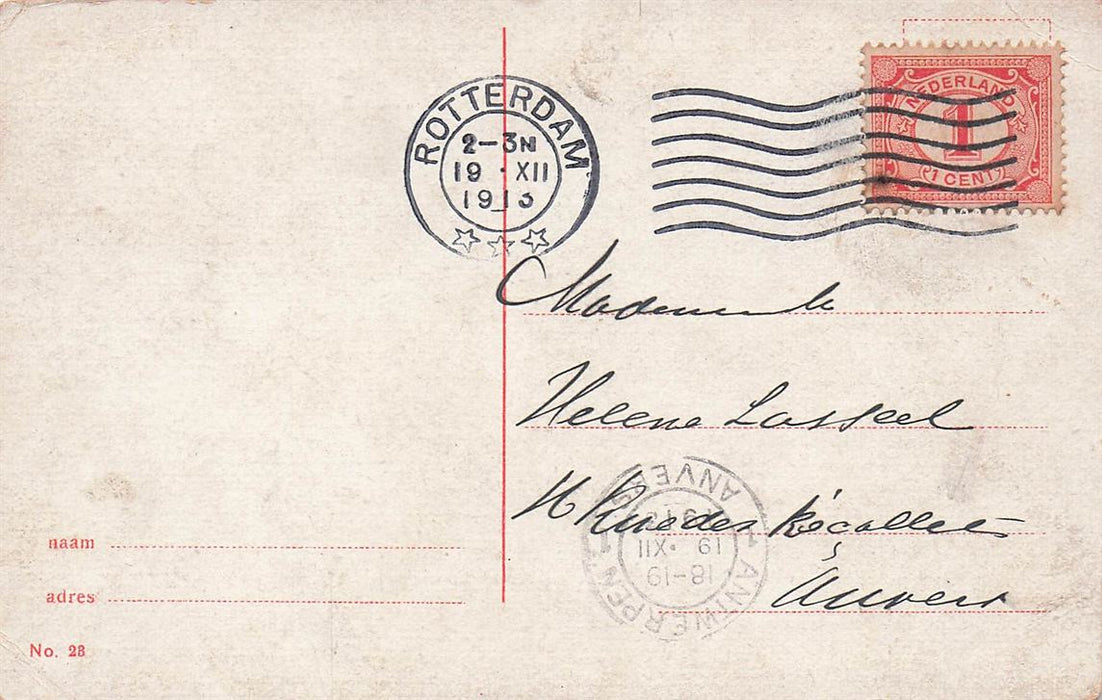 NEDERLAND
1
1 CENT
ROTTERDAM
2-3N
19 · XII
1913
Mademlle
Helene Lasseel
Rue des Récollets
Anvers
ANTWERPEN 1
ANVERS 1
18-19
19 · XII
naam
adres
No. 23